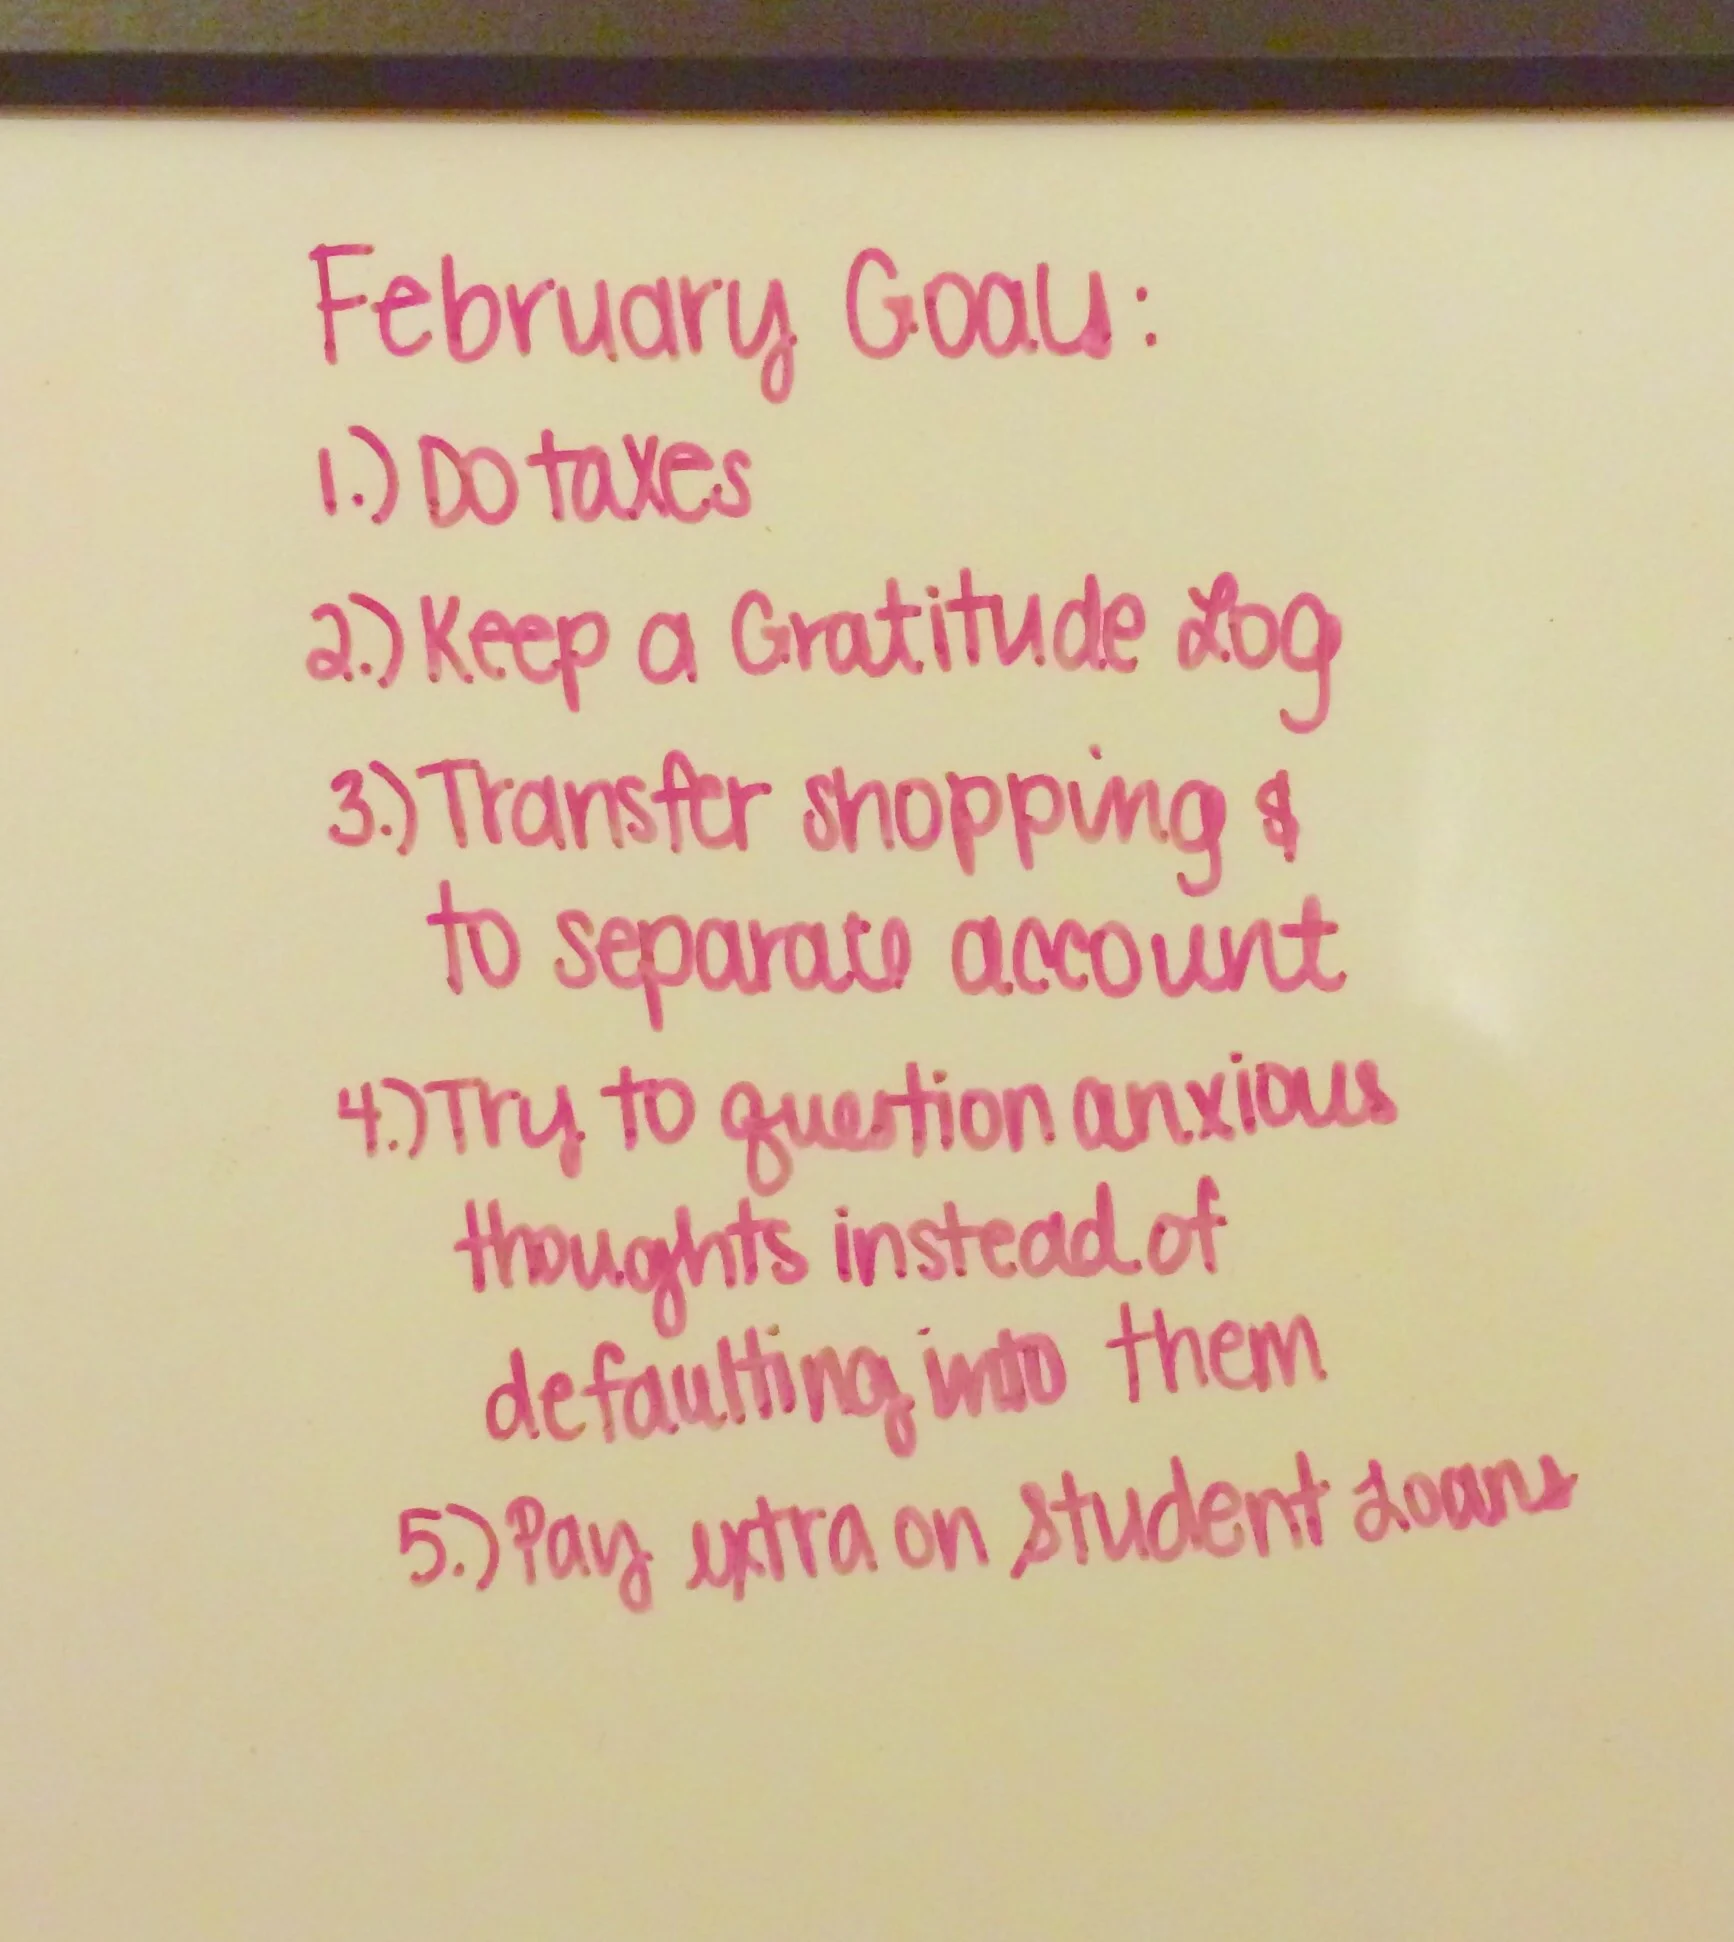 February Goals:
1.) Do taxes
2.) Keep a Gratitude Log
3.) Transfer shopping $
to separate account
4.) Try to question anxious
thoughts instead of
defaulting into them
5.) Pay extra on student loans